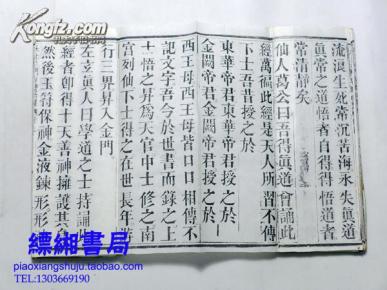 流浪生死常沉苦海永失眞道
眞常之道悟者自得得悟道者
常清靜矣
仙人葛公曰吾得眞道曾誦此
經萬徧此經是天人所習不傳
下士吾昔授之於
東華帝君東華帝君授之於
金闕帝君金闕帝君授之於
西王母西王母皆口口相傳不
記文字吾今於世書而錄之上
士悟之昇爲天官中士修之南
宮列仙下士得之在世長年遊
行三界昇入金門
左玄眞人曰學道之士持誦此
經者卽得十天善神擁護其人
然後玉符保神金液鍊形形
缥缃書局
piaoxiangshuju.taobao.com
TEL:1303669190